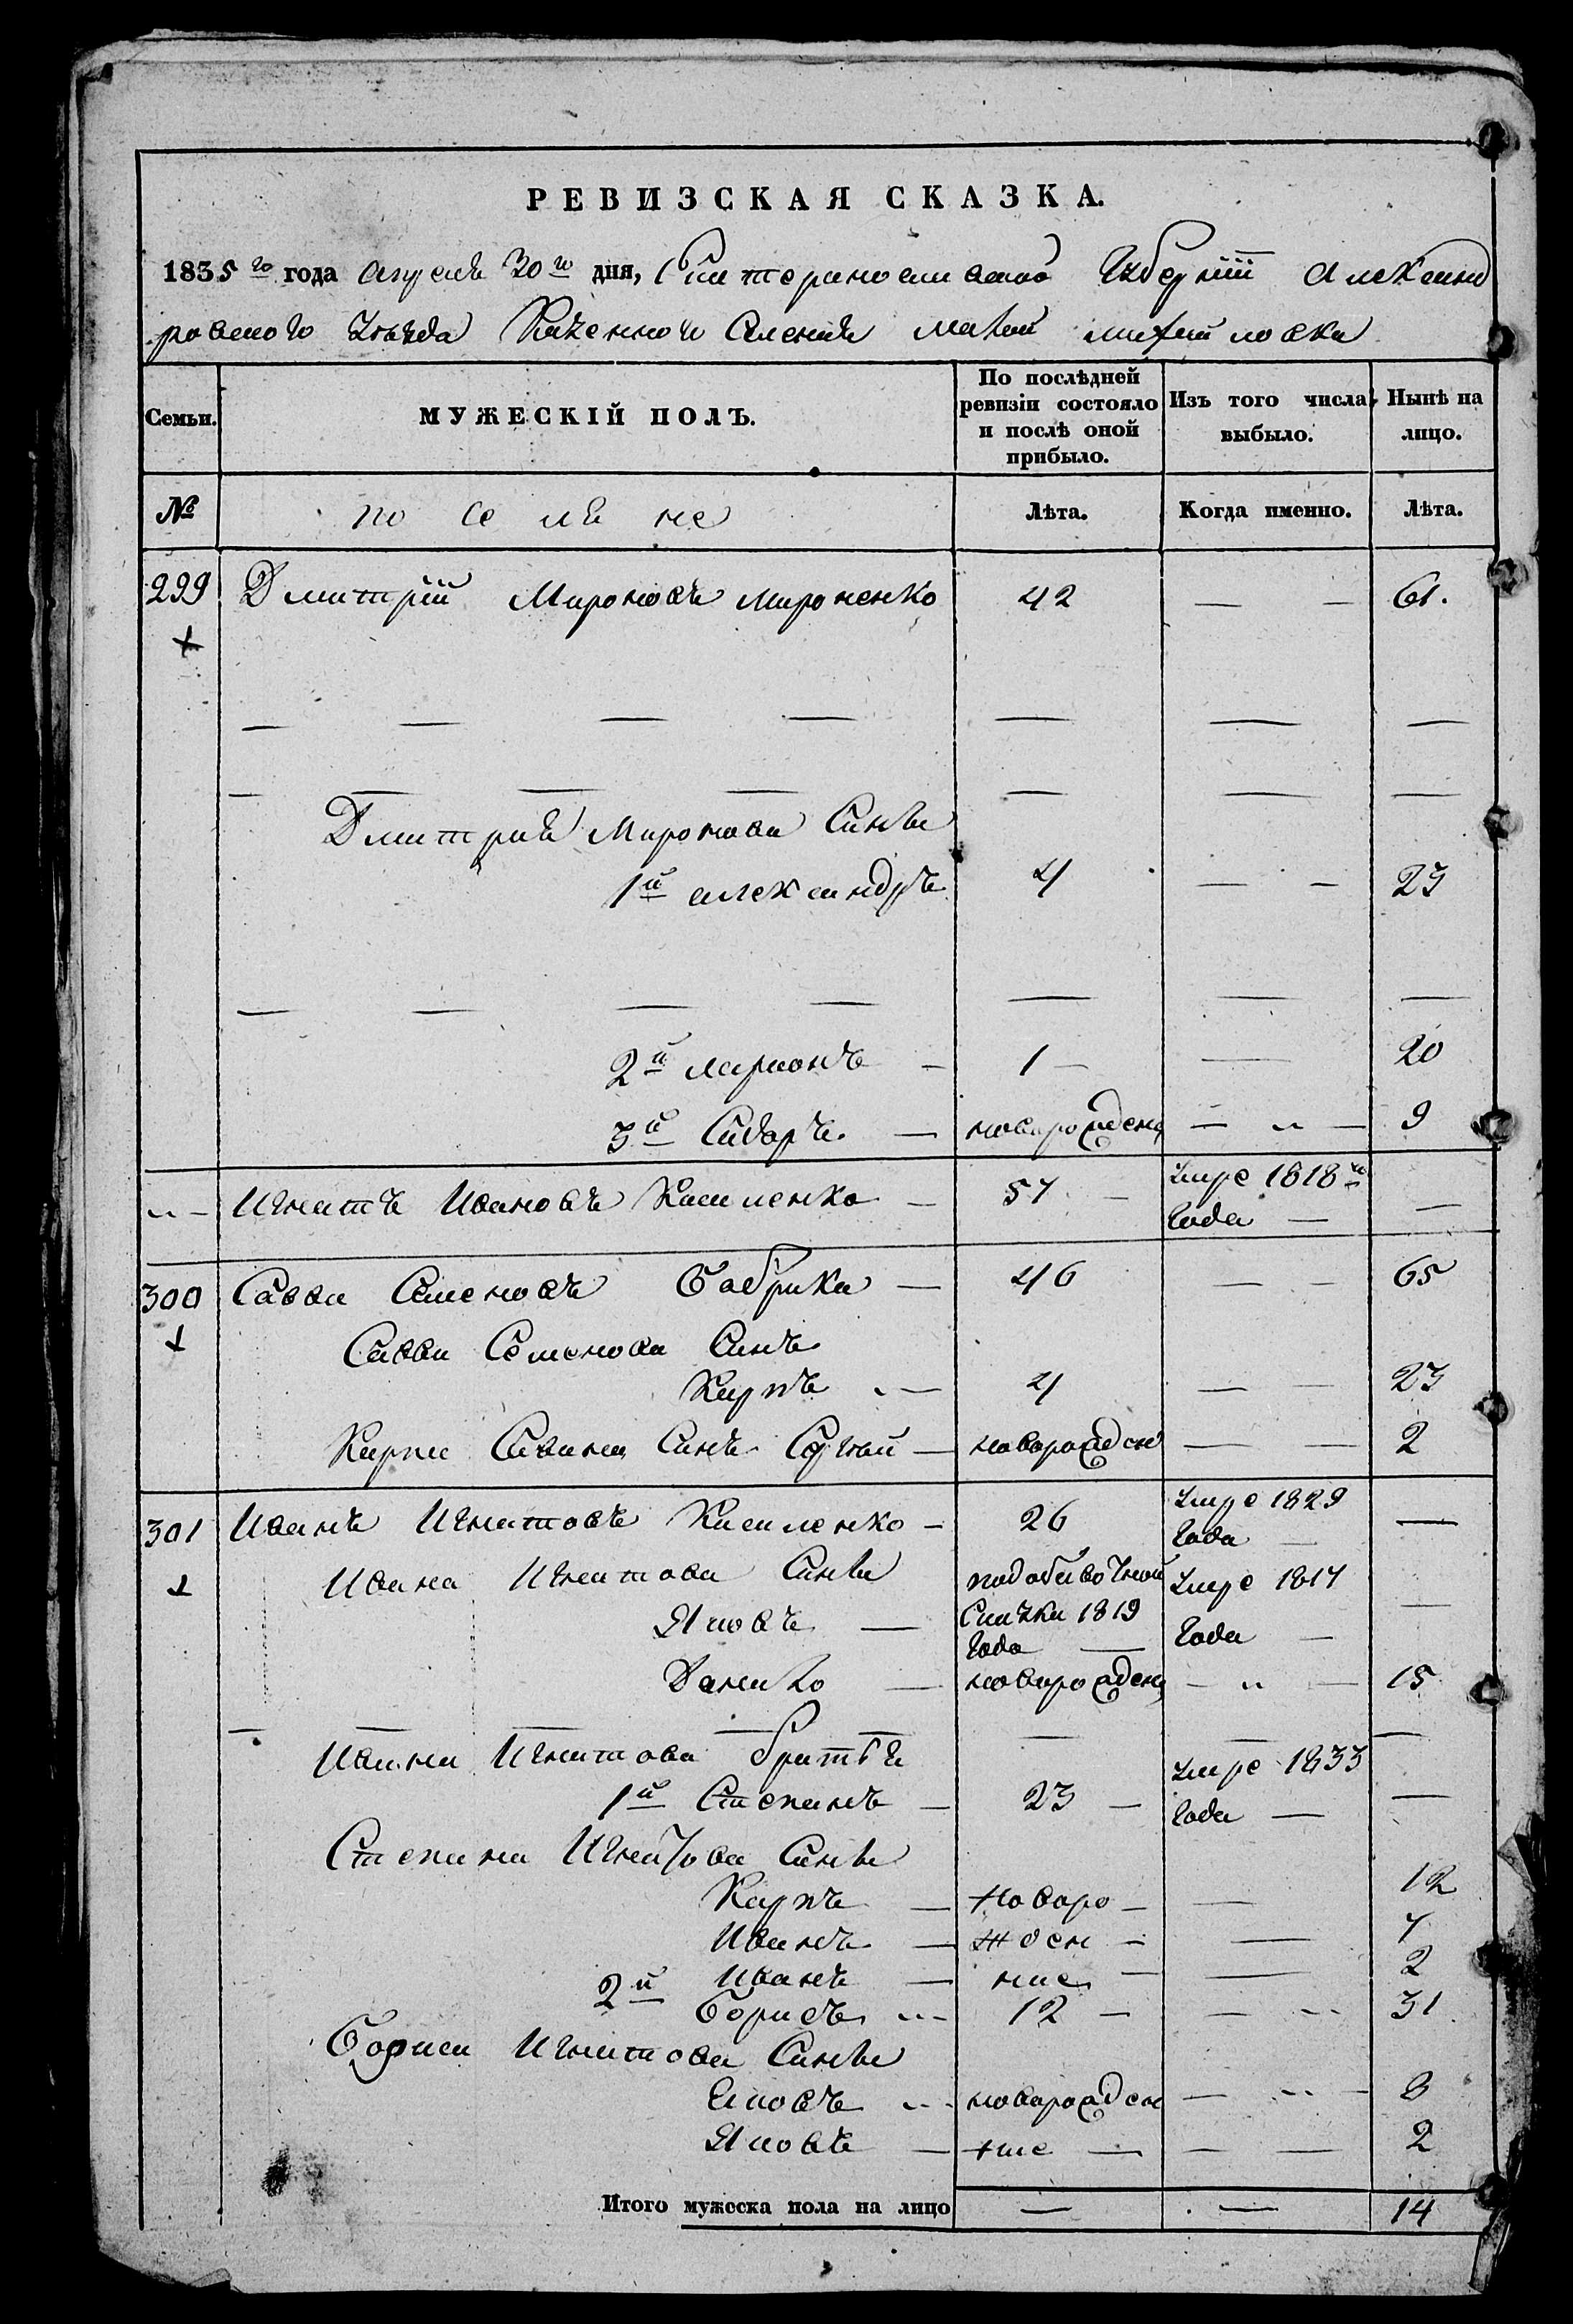 РЕВИЗСКАЯ СКАЗКА.
1835 го года апреля 30 го дня, Екатеринославской Губернии Александ
ровского Уѣзда Казенного Селения малой михайловки
Семьи. МУЖЕСКІЙ ПОЛЪ. По послѣдней ревизіи состояло и послѣ оной прибыло. Изъ того числа выбыло. Нынѣ на лицо.
№ по селяне Лѣта. Когда именно. Лѣта.
299 Дмитрій Мироновъ Мироненко 42 — — 61.
+
— — — — — — —
— — — — — — —
Дмитрия Миронова Сини
1й александръ 4 — — 23
— — — — — — —
2й ларионъ — 1 — — 20
3й Сидоръ — новорожденъ — „ — 9
„ — Игнатъ Ивановъ Кисиленко — 57 — умре 1818го года — —
300 Савва Семеновъ Бабрика — 46 — — 65
+
Савви Семенова Синъ
Карпъ — 4 — — 23
Карпа Савина Синъ Сергий — новорожден — — 2
301 Иванъ Игнатовъ Кисиленко — 26 умре 1829 года —
+
Ивана Игнатова Сини
Яковъ — года умре 1817 года —
Данило — новорожденъ — „ — 15
— — — — — — —
Ивана Игнатова братья
1й Степанъ — 23 — умре 1833 года — —
Степана Игнатова Сини
Карпъ — новоро — — 12
Иванъ — жден — — 7
Иванъ — ние — — 2
2й Борисъ „ — 12 — — „ 31
Бориса Игнатова Сини
Яковъ — новорожден — „ — 8
Яковъ — ние — — — 2
Итого мужеска пола на лицо — — 14